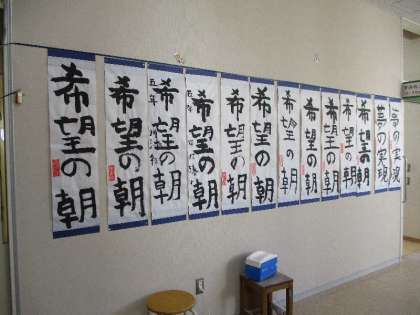 希望の朝
希望の朝
希望の朝
五年
希望の朝
五年
希望の朝
希望の朝
希望の朝
希望の朝
希望の朝
希望の朝
希望の朝
夢の実現
夢の実現